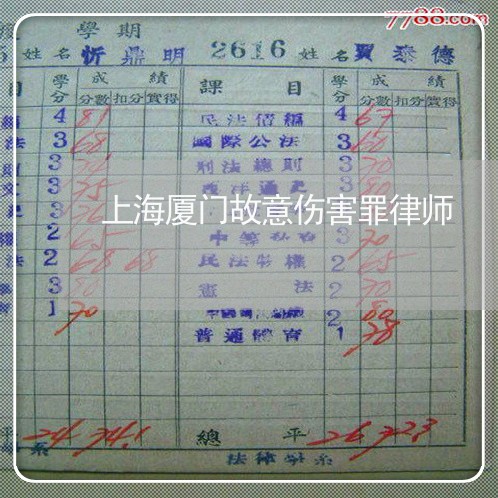 7788.com
學期
姓名 忻鼎明 2616 姓名 賈泰德
目 學分 成績 課目 學分 成績
分數 扣分 實得 分數 扣分 實得
4 81 民法債編 4 67
法 3 68 國際公法 3 60
3 刑法總則 3 70
3 75 西洋通史 3 80
上海厦门故意伤害罪律师
2 65 3 70
法 2 68 68 民法物權 2 65
3 80 憲法 2 70
1 70 2 80
普通體育 1 78
平 24 74.1 總平 26 72.3
系 法律學系